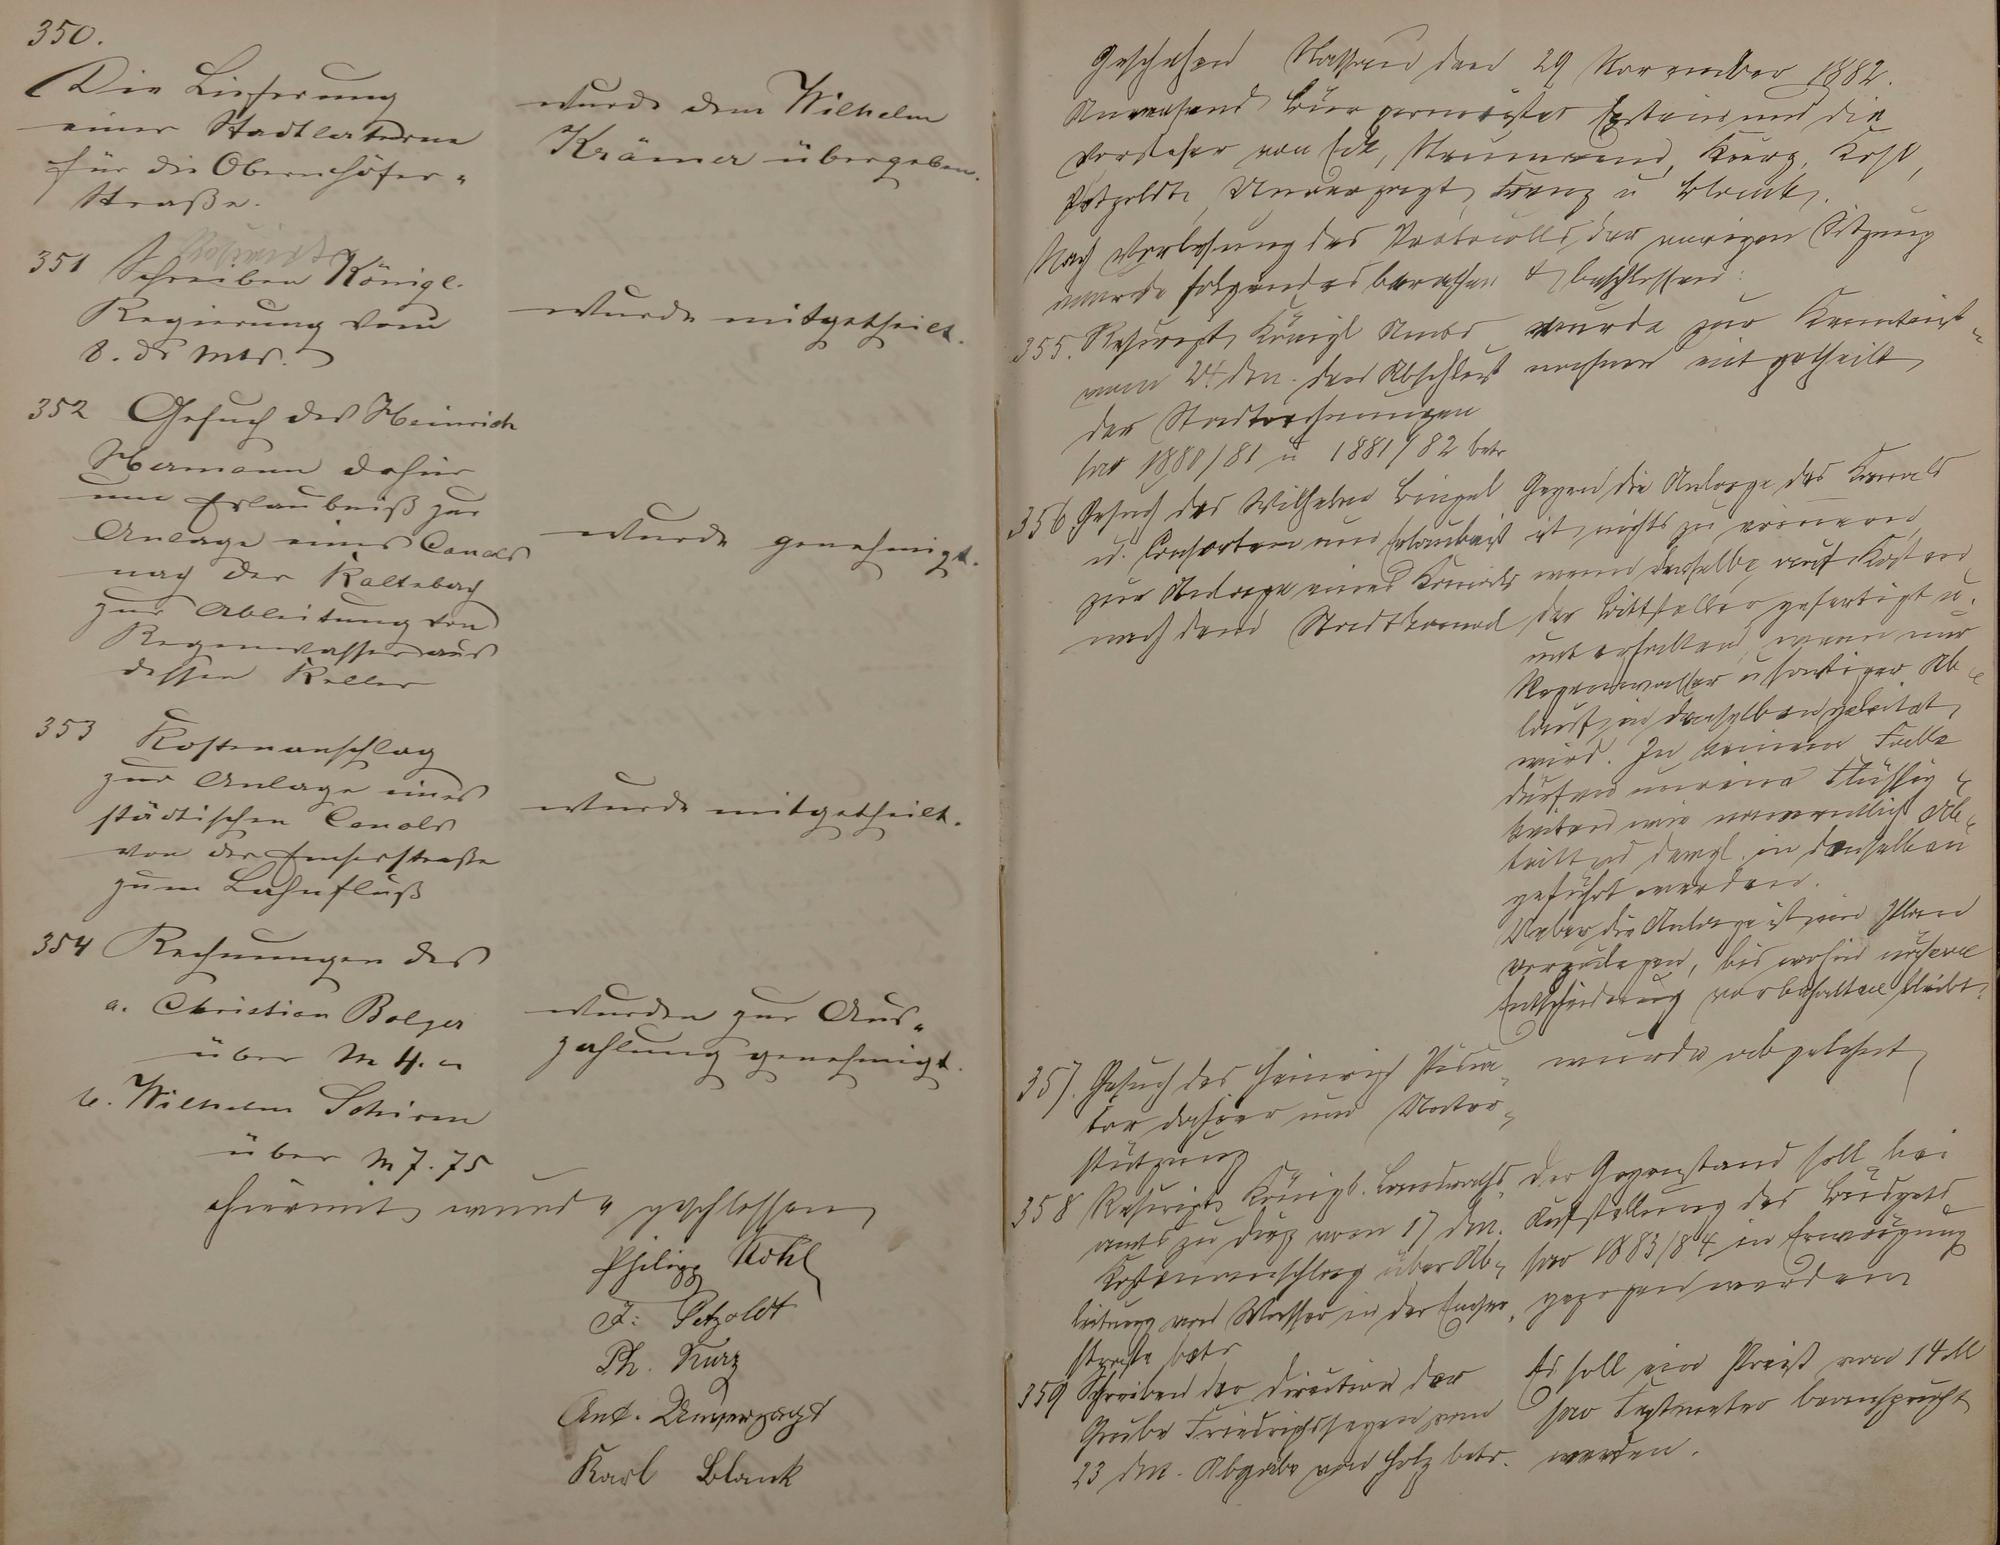 350.
Die Lieferung
einer Stadtlaterne
für die Obernhöfer-
Straße.
wurde dem Wilhelm
Krämer übergeben.
351 Schreiben Königl.
Regierung vom
8. ds Mts.
wurde mitgetheilt.
352 Gesuch des Heinrich
Hermann dahier
um Erlaubniß zur
Anlage eines Canals
nach der Kaltebach
zur Ableitung von
Regenwasser aus
dessen Keller
wurde genehmigt.
353 Kostenanschlag
zur Anlage eines
städtischen Canals
von der Emserstraße
zum Lahnfluß
wurde mitgetheilt.
354 Rechnungen des
a. Christian Balzer
über M 4. –
b. Wilhelm Schirm
über M 7. 75
wurden zur Aus-
zahlung genehmigt.
Hiermit wurde geschlossen
Philipp Kohl
F. Petzoldt
Ph. Kurz
Ant. Unverzagt
Karl Blank
Geschehen Nassau den 29 November 1882.
Anwesend Bürgermeister und die
Vorsteher von Eck, Kurz, Kohl,
Petzoldt, Unverzagt, u Blank.
Nach Verlesung des Protocolls der vorigen Sitzung
wurde folgendes berathen & beschlossen:
355. Rescript Königl Amts
vom 24 dM. den Abschluß
der Stadtrechnungen
pro 1880/81 u 1881/82 betr
wurde zur Kenntniß-
nahme mitgetheilt
356 Gesuch des Wilhelm Bingel
u. Consorten um Erlaubniß
zur Anlage eines Kanals
nach dem Stadtkanal
Gegen die Anlage des Kanals
ist nichts zu erinnern,
wenn derselbe auf Kosten
der Bittsteller gefertigt u.
unterhalten, wenn nur
Regenwasser u sonstiger Ab-
lauf in denselben geleitet
wird. In keinem Falle
dürfen unreine Flüssig-
keiten wie namentlich Ab-
tritt und dergl. in denselben
geführt werden.
Ueber die Anlage ist ein Plan
vorzulegen, bis wohin unsere
Entscheidung vorbehalten bleibt.
357. Gesuch des Heinrich Pisca-
tor dahier um Unter-
stützung
wurde abgelehnt
358 Rescript Königl. Landraths-
amts zu Diez vom 17 dM.
Kostenanschlag über Ab-
leitung von Wasser in der Emser-
straße betr
Der Gegenstand soll bei
Aufstellung des Budgets
pro 1883/84 in Erwägung
gezogen werden
359 Schreiben der Direction der
Grube Friedrichssegen vom
23 dM. Abgabe von Holz betr.
Es soll ein Preiß von 14 M
pro Festmeter beansprucht
werden.